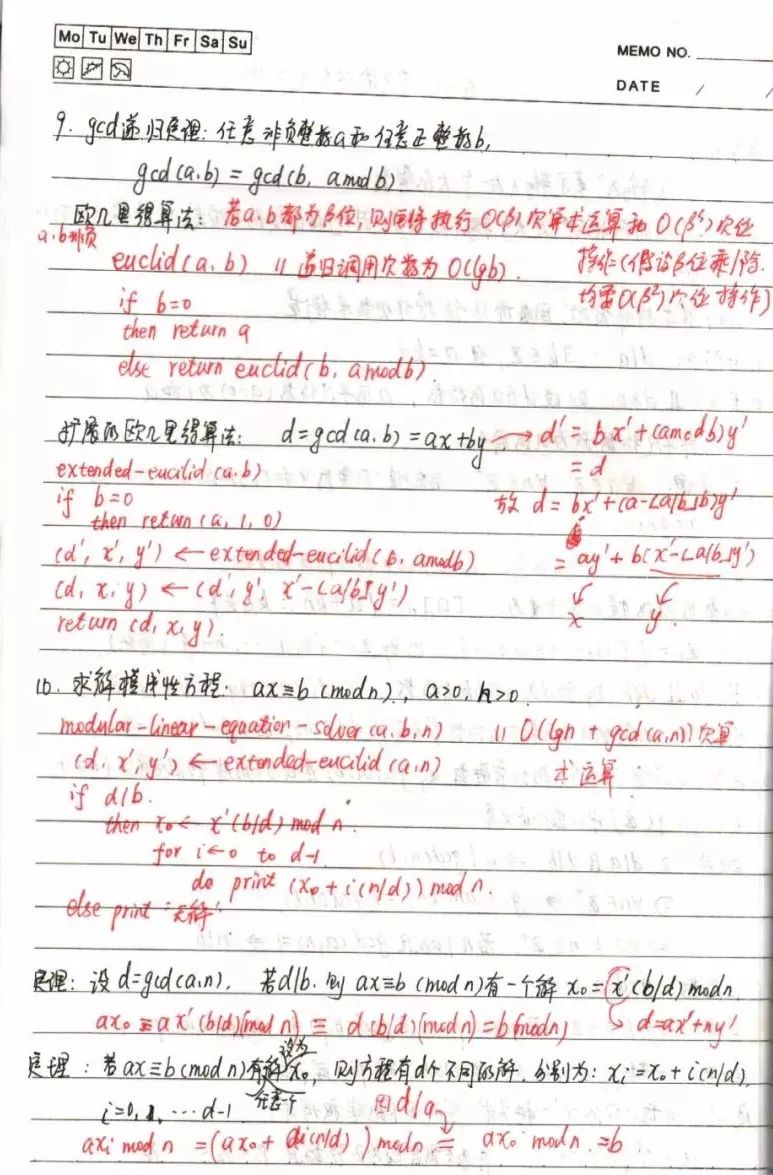 Mo Tu We Th Fr Sa Su
MEMO NO.
DATE / /
9. gcd递归定理: 任意非负整数a和任意正整数b,
gcd(a,b) = gcd(b, a mod b)
欧几里得算法: 若a,b都为β位,则便将执行O(β)次算术运算和O(β³)次位
a,b非负
操作(假设β位乘/除
euclid(a,b) // 递归调用次数为O(lgb).
均需O(β²)次位操作)
if b=0
then return a
else return euclid(b, a mod b)
扩展的欧几里得算法: d=gcd(a,b)=ax+by → d' = bx'+(a mod b)y'
= d
extended-eucilid(a,b)
if b=0
then return(a, 1, 0)
故 d = bx'+(a-⌊a/b⌋b)y'
(d', x', y') ← extended-eucilid(b, a mod b)
= ay'+b(x'-⌊a/b⌋y')
(d, x, y) ← (d', y', x'-⌊a/b⌋y')
x y
return (d, x, y).
10. 求解模线性方程: ax≡b (mod n), a>0, n>0.
modular-linear-equation-solver(a,b,n) // O(lgn + gcd(a,n))次算
术运算
(d, x', y') ← extended-eucilid(a,n)
if d|b.
then x₀ ← x'(b/d) mod n.
for i←0 to d-1
do print (x₀+i(n/d)) mod n.
else print "无解"
定理: 设d=gcd(a,n), 若d|b. 则 ax≡b (mod n)有一个解 x₀=x'(b/d) mod n.
ax₀ ≡ ax'(b/d)(mod n) ≡ d(b/d)(mod n) = b(mod n) ↳ d=ax'+ny'
设为
定理: 若ax≡b(mod n)有解x₀, 则方程有d个不同的解, 分别为: xᵢ=x₀+i(n/d),
任意一个
i=0, 1, ... d-1 因d|a
axᵢ mod n = (ax₀+ai(n/d)) mod n = ax₀ mod n = b